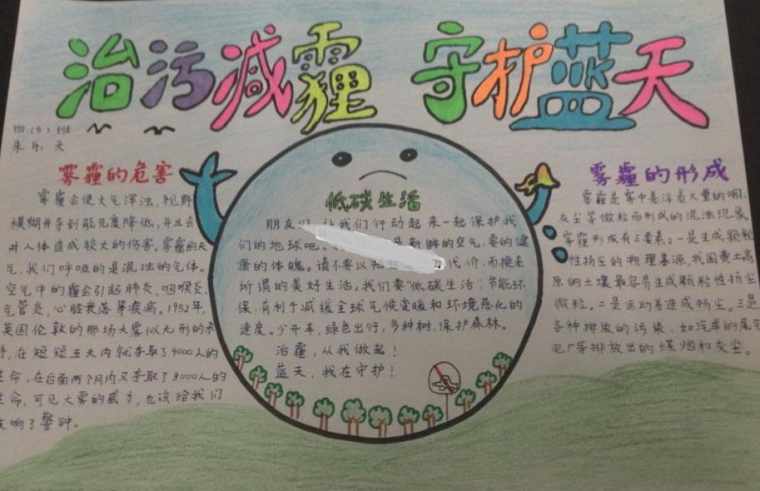 治污减霾 守护蓝天
四(5)班
朱乐天
雾霾的危害
雾霾会使大气浑浊,视野
模糊并导致能见度降低,并且会
对人体造成较大的伤害,雾霾的天
气,我们呼吸的是混浊的气体。
空气中的霾会引起肺炎、咽喉炎、
气管炎、心脏衰落等疾病。1952年,
英国伦敦的那场大雾以无形的杀
手,在短短五天内就夺取了4000人的
生命,在后面两个月内又夺取了8000人的
生命,可见大雾的威力,也该给我们
敲响了警钟。
低碳生活
朋友们,让我们行动起来一起保护我
们的地球吧。是新鲜的空气,要的健
康的体魄。请不要以代价,而换来
所谓的美好生活。我们要“低碳生活”:节能环
保,有利于减缓全球气候变暖和环境恶化的
速度。少开车,绿色出行,多种树,保护森林。
治霾,从我做起!
蓝天,我在守护!
雾霾的形成
雾霾是雾中悬浮着大量的烟、
灰尘等微粒而形成的混浊现象。
雾霾形成有三要素:一是生成颗粒
性扬尘的物理基源,我国黄土高
原的土壤最容易生成颗粒性扬尘
微粒。二是运动差造成扬尘。三是
各种排放的污染,如汽车的尾气
电厂等排放出的煤烟和灰尘。